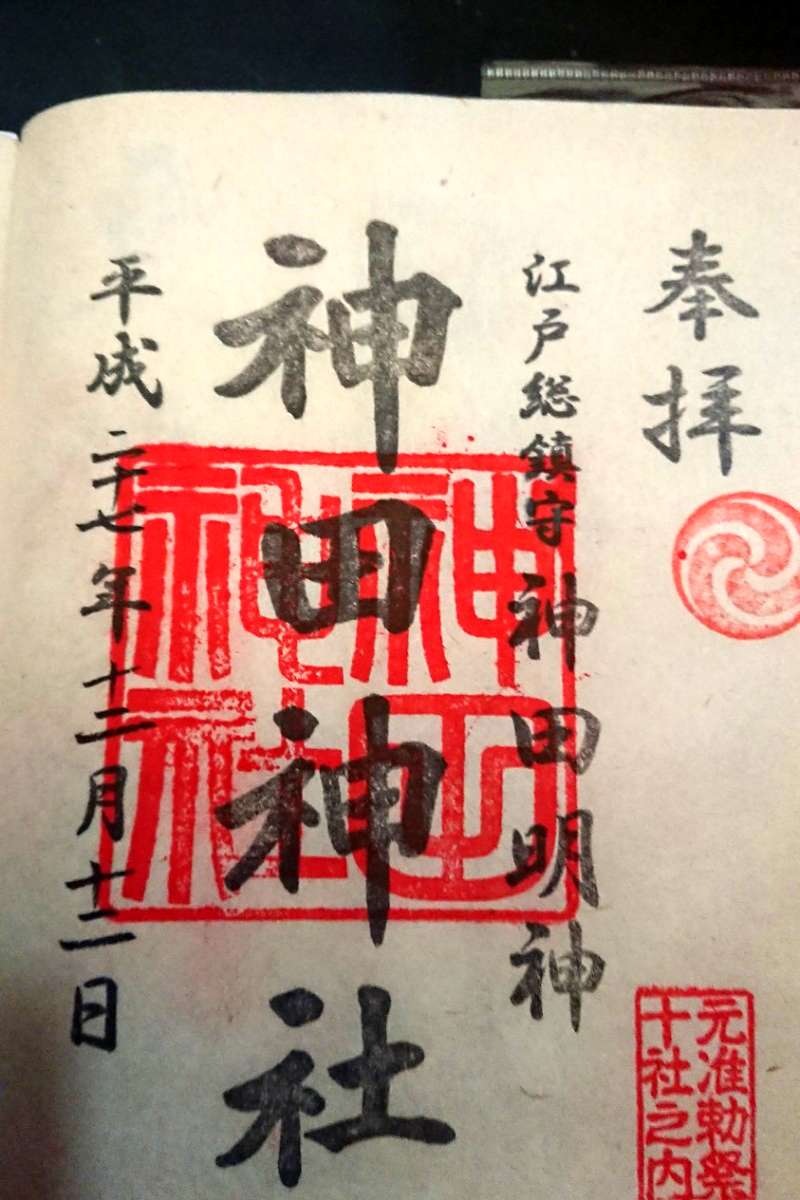 奉拝
元准勅祭
十社之内
江戸総鎮守 神田明神
神田神社
神田
神社
平成二十七年十二月十二日